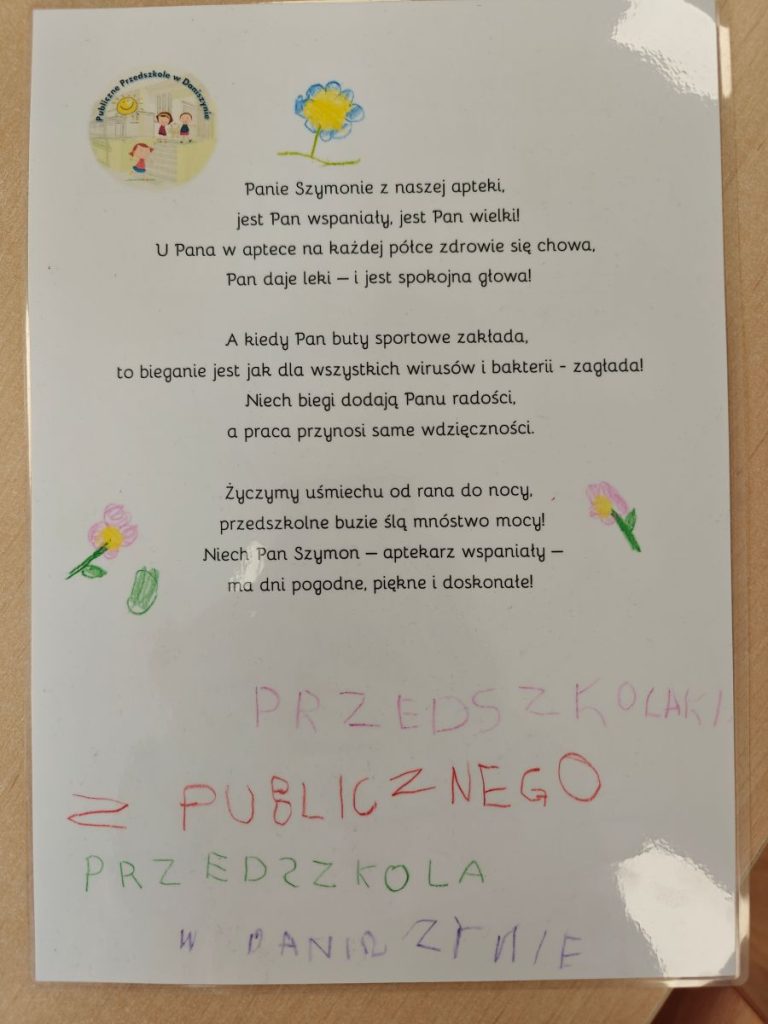 Publiczne Przedszkole w Daniszynie
Panie Szymonie z naszej apteki,
jest Pan wspaniały, jest Pan wielki!
U Pana w aptece na każdej półce zdrowie się chowa,
Pan daje leki – i jest spokojna głowa!
A kiedy Pan buty sportowe zakłada,
to bieganie jest jak dla wszystkich wirusów i bakterii - zagłada!
Niech biegi dodają Panu radości,
a praca przynosi same wdzięczności.
Życzymy uśmiechu od rana do nocy,
przedszkolne buzie ślą mnóstwo mocy!
Niech Pan Szymon – aptekarz wspaniały –
ma dni pogodne, piękne i doskonałe!
PRZEDSZKOLAKI
Z PUBLICZNEGO
PRZEDSZKOLA
W DANISZYNIE